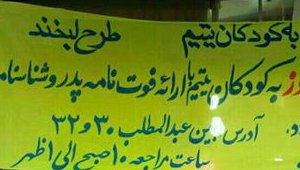 به کودکان یتیم طرح لبخند
به کودکان یتیم با ارائه فوت نامه پدر و شناسنامه
آدرس بین عبدالمطلب ۳۰ و ۳۲
ساعت مراجعه ۱۰ صبح الی ۱ ظهر